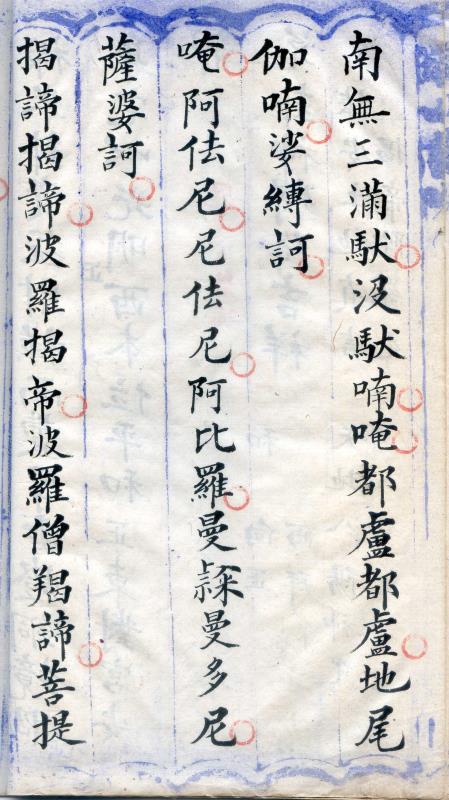 南無三滿馱没馱喃唵都盧都盧地尾
伽喃娑縛訶
唵阿佉尼尼佉尼阿比羅曼多尼
薩婆訶
揭諦揭諦波羅揭帝波羅僧羯諦菩提